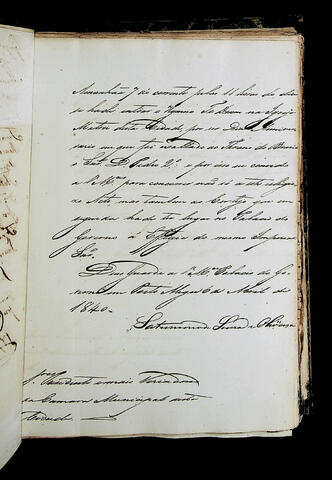 Amanhaã 7 do corrente pelas 11 horas do dia
se hade cantar o Hymno Te Deum na Igreja
Matriz desta Cidade por ser Dia Anniver-
sario em que foi exaltado ao Throno do Brasil o
Snr. D. Pedro 2º e por isso eu convido
a V. Mces para concorrer não só a este religio-
so Acto, mas tambem ao Cortejo que em
seguida hade ter lugar no Palacio do
Governo á Effigie do mesmo Impera-
dor.
Deos Guarde a V. Mces Palacio do Go-
verno em Porto Alegre 6 de Abril de
1840.
Saturnino de Souza e Oliveira
Snres
Presidente e mais Vereadores
da Camara Municipal desta
Cidade